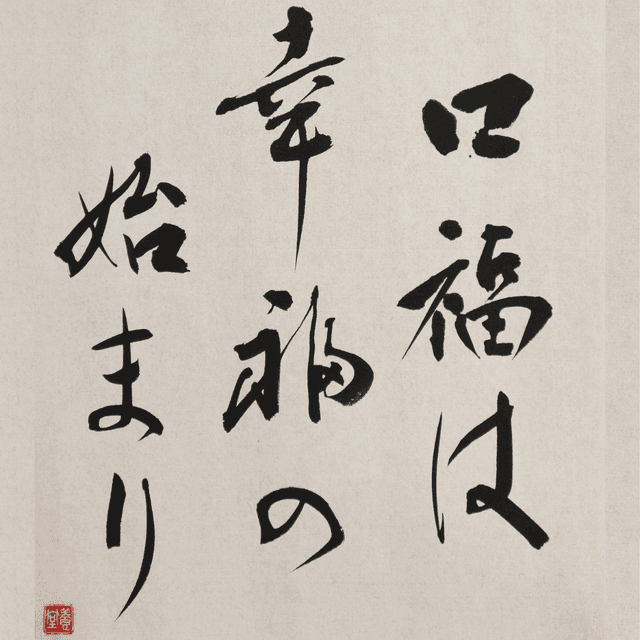 口福は
幸福の
始まり